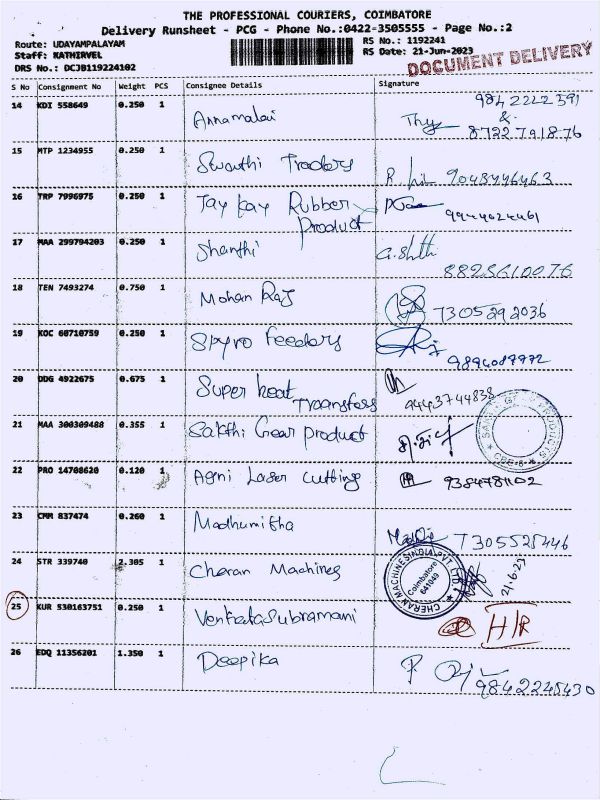 THE PROFESSIONAL COURIERS, COIMBATORE
Delivery Runsheet - PCG - Phone No.:0422-3505555 - Page No.:2
Route: UDAYAMPALAYAM RS No.: 1192241
Staff: KATHIRVEL RS Date: 21-Jun-2023
DRS No.: DCJB119224102 DOCUMENT DELIVERY
S No Consignment No Weight PCS Consignee Details Signature
14 KDI 558649 0.250 1 Annamalai 9842222591
&
8722791876
15 MTP 1234955 0.250 1 Swathi Traders 9043446463
16 TRP 7996975 0.250 1 Jay Kay Rubber
Product 9944024461
17 MAA 299794203 0.250 1 Shanthi
8825610076
18 TEN 7493274 0.750 1 Mohan Raj 7305292036
19 KOC 60710759 0.250 1 Spyro Feeders
9894087772
20 DDG 4922675 0.675 1 Super heat
Transfers 9443744838
21 MAA 300309488 0.355 1 Sakthi Gear product
22 PRO 14708620 0.120 1 Agni Laser cutting 9384781102
23 CMM 837474 0.260 1 Madhumitha 7305525446
24 STR 339740 2.305 1 Cheran Machines CHERAN MACHINES INDIA PVT LTD
Coimbatore
641049
21.6.23
25 KUR 530163751 0.250 1 Venkatasubramani H/R
26 EDQ 11356201 1.350 1 Deepika
9842245430